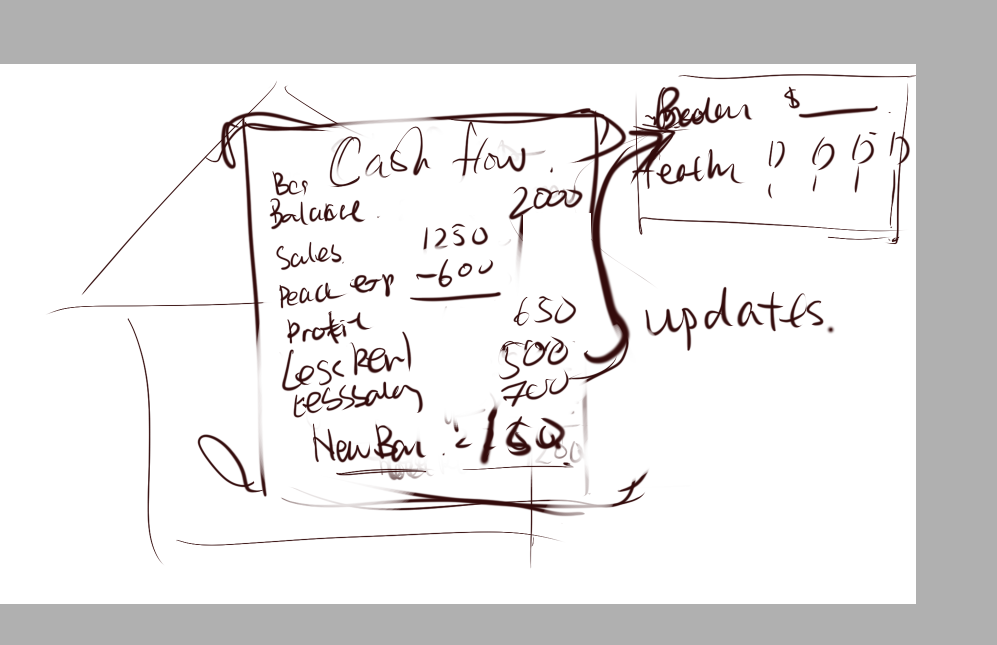 Cash flow.
Balance. 2000
Sales. 1250
exp -600
Profit 650
Less 500
Less salary 700
New Bal : 150
$
Health
updates.